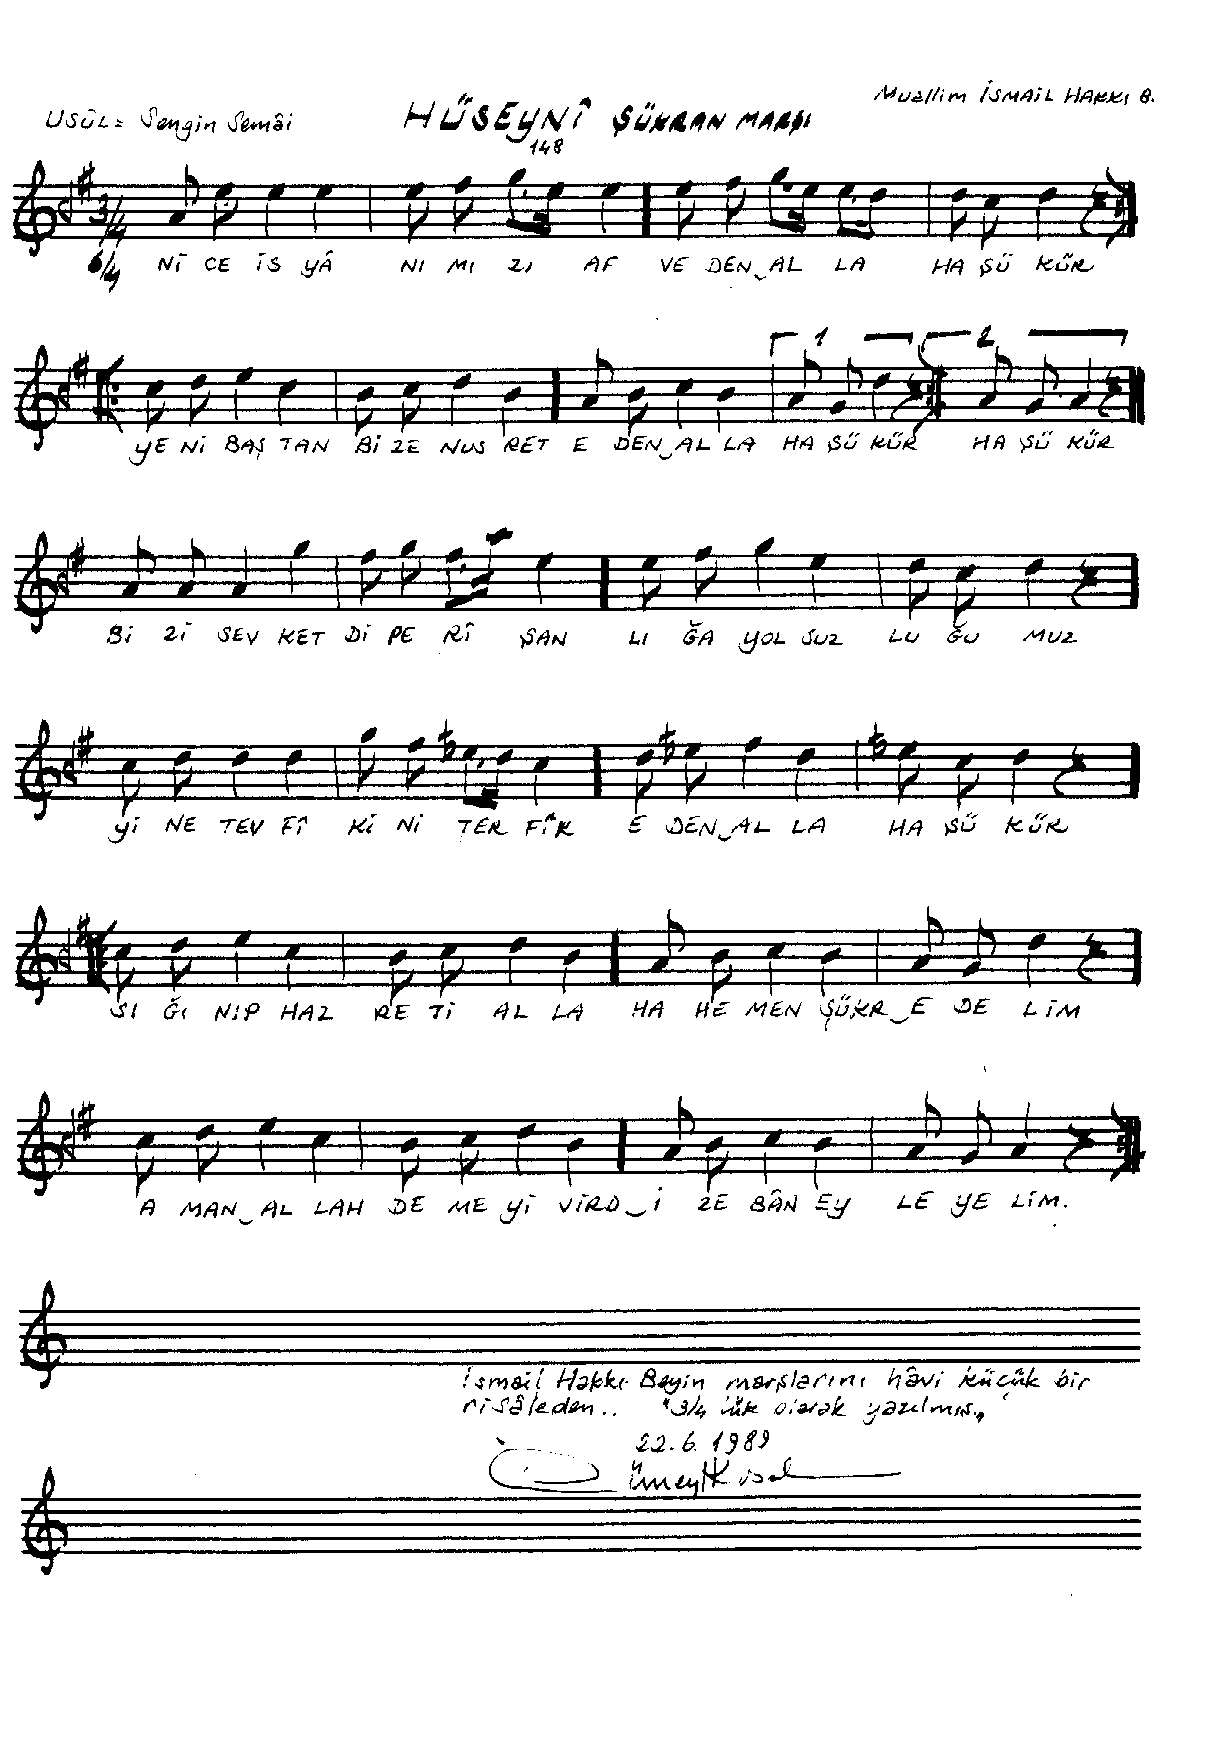 Muallim İSMAİL HAKKI B.
USÛL= Sengin Semâi HÜSEYNÎ ŞÜKRAN MARŞI
148
3/4
6/4 Nİ CE İS YÂ NI MI ZI AF VE DEN‿AL LA HA ŞÜ KÜR
1 2
YE Nİ BAŞ TAN Bİ ZE NUS RET E DEN‿AL LA HA ŞÜ KÜR HA ŞÜ KÜR
Bİ Zİ SEV KET Dİ PE RÎ ŞAN LI ĞA YOL SUZ LU ĞU MUZ
Yİ NE TEV FÎ Kİ Nİ TER FÎK E DEN‿AL LA HA ŞÜ KÜR
SI ĞI NIP HAZ RE Tİ AL LA HA HE MEN ŞÜKR‿E DE LİM
A MAN‿AL LAH DE ME Yİ VİRD‿İ ZE BÂN EY LE YE LİM.
İsmail Hakkı Beyin marşlarını hâvi küçük bir
risâleden.. "3/4 lük olarak yazılmış"
22.6.1989